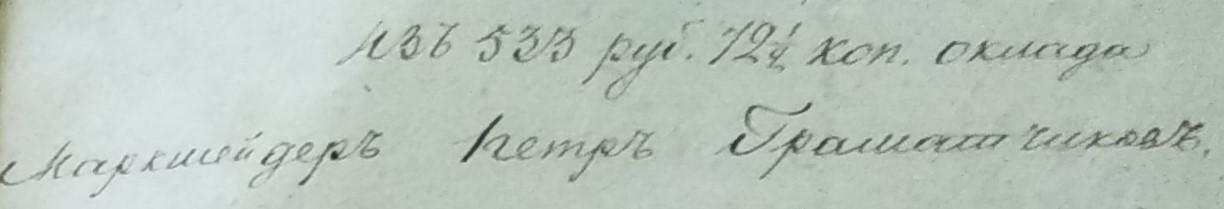 изъ 533 руб. 72 1/4 коп. оклада
Маркшейдеръ Петръ Граматчиковъ.